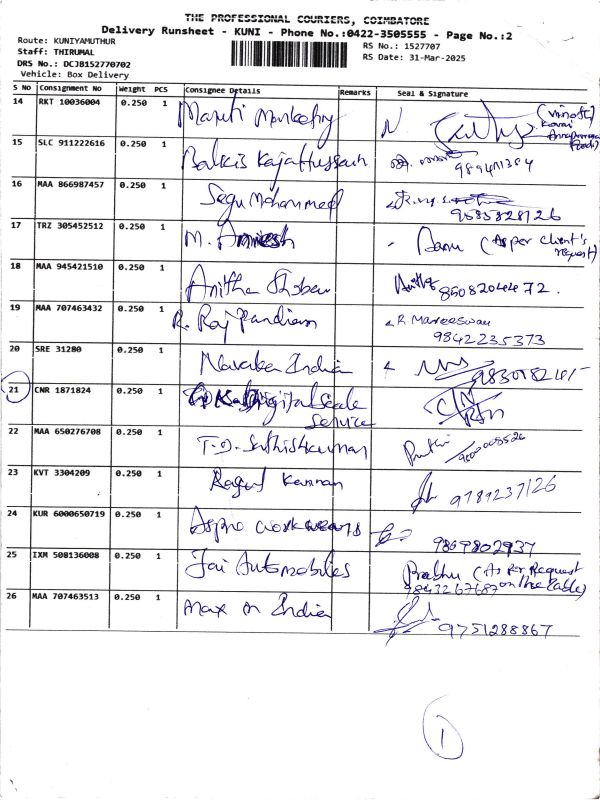 THE PROFESSIONAL COURIERS, COIMBATORE
Delivery Runsheet - KUNI - Phone No.:0422-3505555 - Page No.:2
Route: KUNIYAMUTHUR
Staff: THIRUMAL
DRS No.: DCJB152770702
Vehicle: Box Delivery
RS No.: 1527707
RS Date: 31-Mar-2025
S No Consignment No Weight PCS Consignee Details Remarks Seal & Signature
14 RKT 10036004 0.250 1 Maruti Marketing
15 SLC 911222616 0.250 1 Balkis Kajahussain
16 MAA 866987457 0.250 1 Segu Mohammed 9585828126
17 TRZ 305452512 0.250 1 M. Amiesh Banu (As per client's
request)
18 MAA 945421510 0.250 1 Anitha Shoban Anitha 8508204472.
19 MAA 707463432 0.250 1 R. Raj Pandian R. Mareeswari
9842235373
20 SRE 31280 0.250 1 Navaka India
21 CNR 1871824 0.250 1 Digital Scale
Service
22 MAA 650276708 0.250 1 T.D. Sathishkumar
23 KVT 3304209 0.250 1 Ragul Kannan 9789237126
24 KUR 6000650719 0.250 1 Aspro workwears
9869802937
25 IXM 508136008 0.250 1 Jai Automobiles Prabhu (As per Request
9843267687 on the table)
26 MAA 707463513 0.250 1 Max m India
9751288867
1